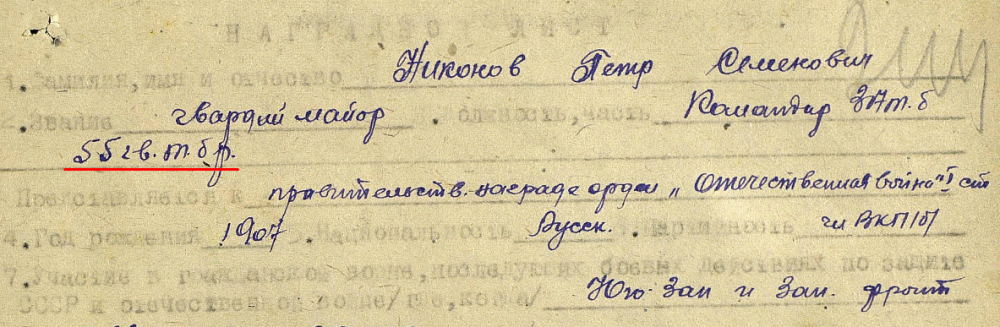 НАГРАДНОЙ ЛИСТ
1. Фамилия, имя и отчество Никонов Петр Семенович
2. Звание гвардий майор 3. Должность, часть Командир
55 гв. т. бр.
Представляется к правительств. награде орден „Отечественная война" I ст
4. Год рождения 1907. 5. Национальность Русск. 6. Партийность чл ВКП/б/
7. Участие в гражданской войне, последующих боевых действиях по защите
СССР и отечественной войне/где, когда/ Юго-Зап и Зап. фронт